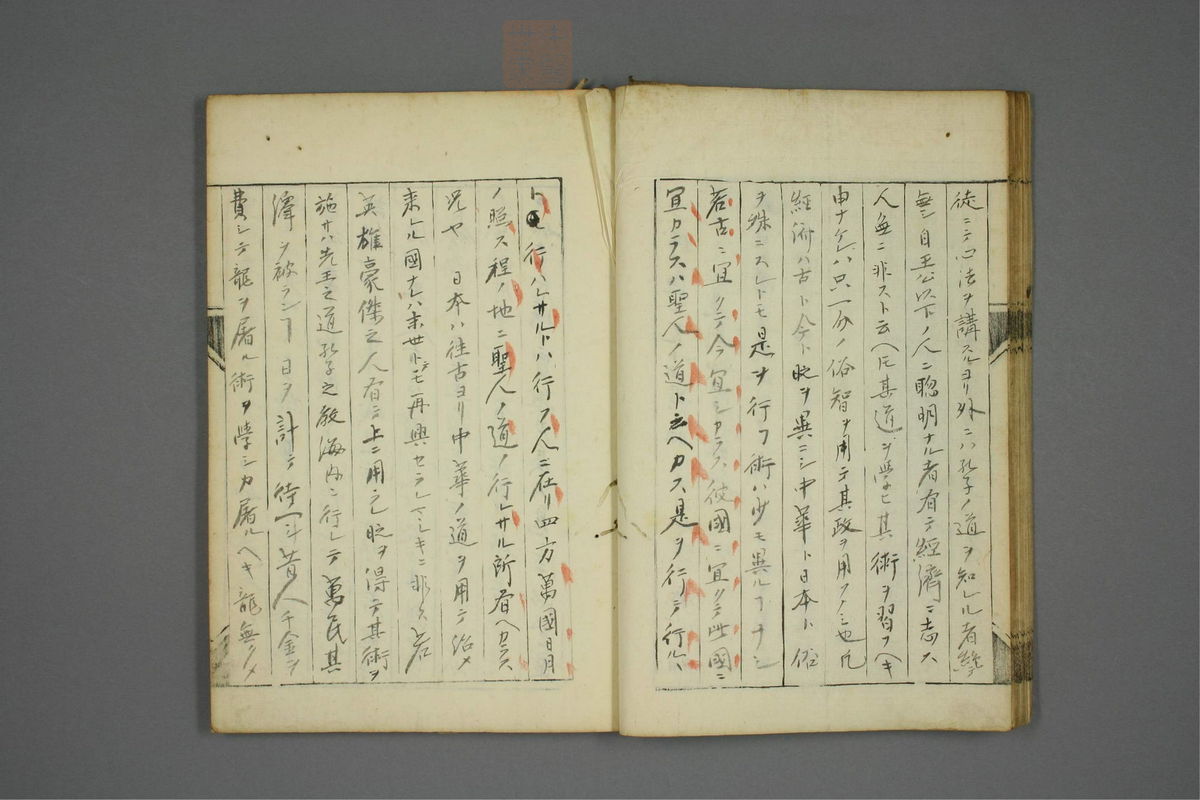 徒ニテ心法ヲ講スルヨリ外ニハ孔子ノ道ヲ知レル者絶テ
無シ自王公以下ノ人ニ聡明ナル者有テ經濟ニ志ス
人無ニ非スト云ヘ𪜈其道ヲ學ヒ其術ヲ習フヘキ
申ナケレハ只一分ノ俗智ヲ用テ其政ヲ用フノミ也凡
經術ハ古ト今ト時ヲ異ニシ中華ト日本ト俗
ヲ殊ニスレトモ是ヲ行フ術ハ少モ異ルヿナシ
若古ニ宜クテ今宜シカラス彼國ニ宜クテ此國ニ
宜カラスハ聖人ノ道ト云ヘカラス是ヲ行テ行ル、
ト行ハレサルトハ行フ人ニ在リ四方萬國日月
ノ照ス程ノ地ニ聖人ノ道ノ行レサル所有ヘカラス
况ヤ 日本ハ往古ヨリ中華ノ道ヲ用テ治メ
来レル國ナレハ末世トテモ再興セラレマシキニ非ス若
英雄豪傑之人有テ上ニ用ラレ時ヲ得テ其術ヲ
施サハ先王之道孔子之教海内ニ行レテ萬民其
澤ヲ被ランヿ日ヲ計テ待ヘシ昔人千金ヲ
費シテ龍ヲ屠ル術ヲ學シカ屠ルヘキ龍無クメ